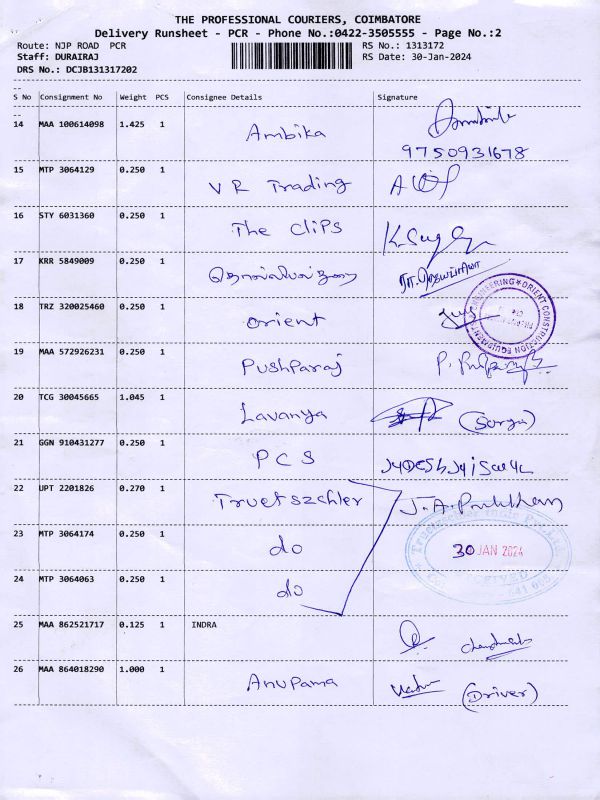 THE PROFESSIONAL COURIERS, COIMBATORE
Delivery Runsheet - PCR - Phone No.:0422-3505555 - Page No.:2
Route: NJP ROAD PCR RS No.: 1313172
Staff: DURAIRAJ RS Date: 30-Jan-2024
DRS No.: DCJB131317202
S No Consignment No Weight PCS Consignee Details Signature
14 MAA 100614098 1.425 1 Ambika
9750931678
15 MTP 3064129 0.250 1 VR Trading
16 STY 6031360 0.250 1 The CliPS
17 KRR 5849009 0.250 1
18 TRZ 320025460 0.250 1 Orient
19 MAA 572926231 0.250 1 Pushparaj
20 TCG 30045665 1.045 1 Lavanya (Surya)
21 GGN 910431277 0.250 1 PCS
22 UPT 2201826 0.270 1 Truetszchler
23 MTP 3064174 0.250 1 do
30 JAN 2024
24 MTP 3064063 0.250 1 do
25 MAA 862521717 0.125 1 INDRA
26 MAA 864018290 1.000 1 Anupama (Driver)